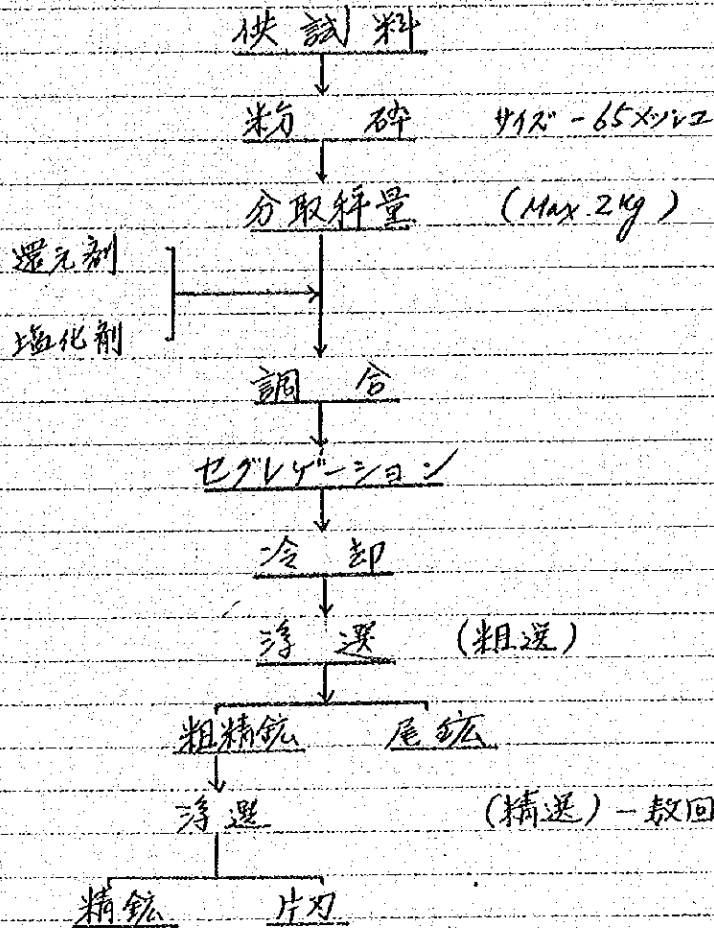 供試料
粉砕 サイズ -65メッシュ
分取秤量 (Max 2kg)
還元剤
塩化剤
調合
セグレゲーション
冷却
浮選 (粗選)
粗精鉱 尾鉱
浮選 (精選) - 数回
精鉱 片刃